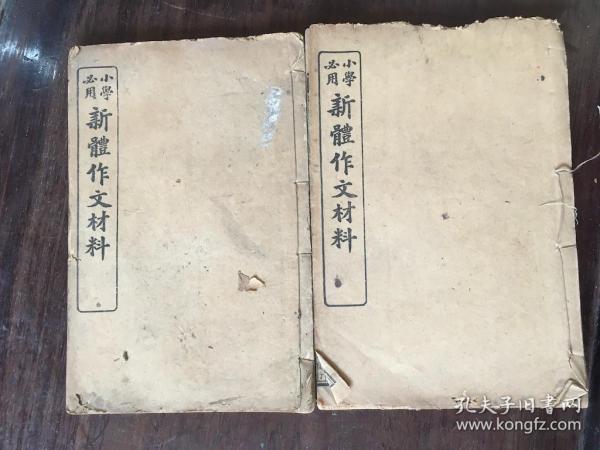 小學
必用
新體作文材料
小學
必用
新體作文材料
孔夫子旧书网
www.kongfz.com